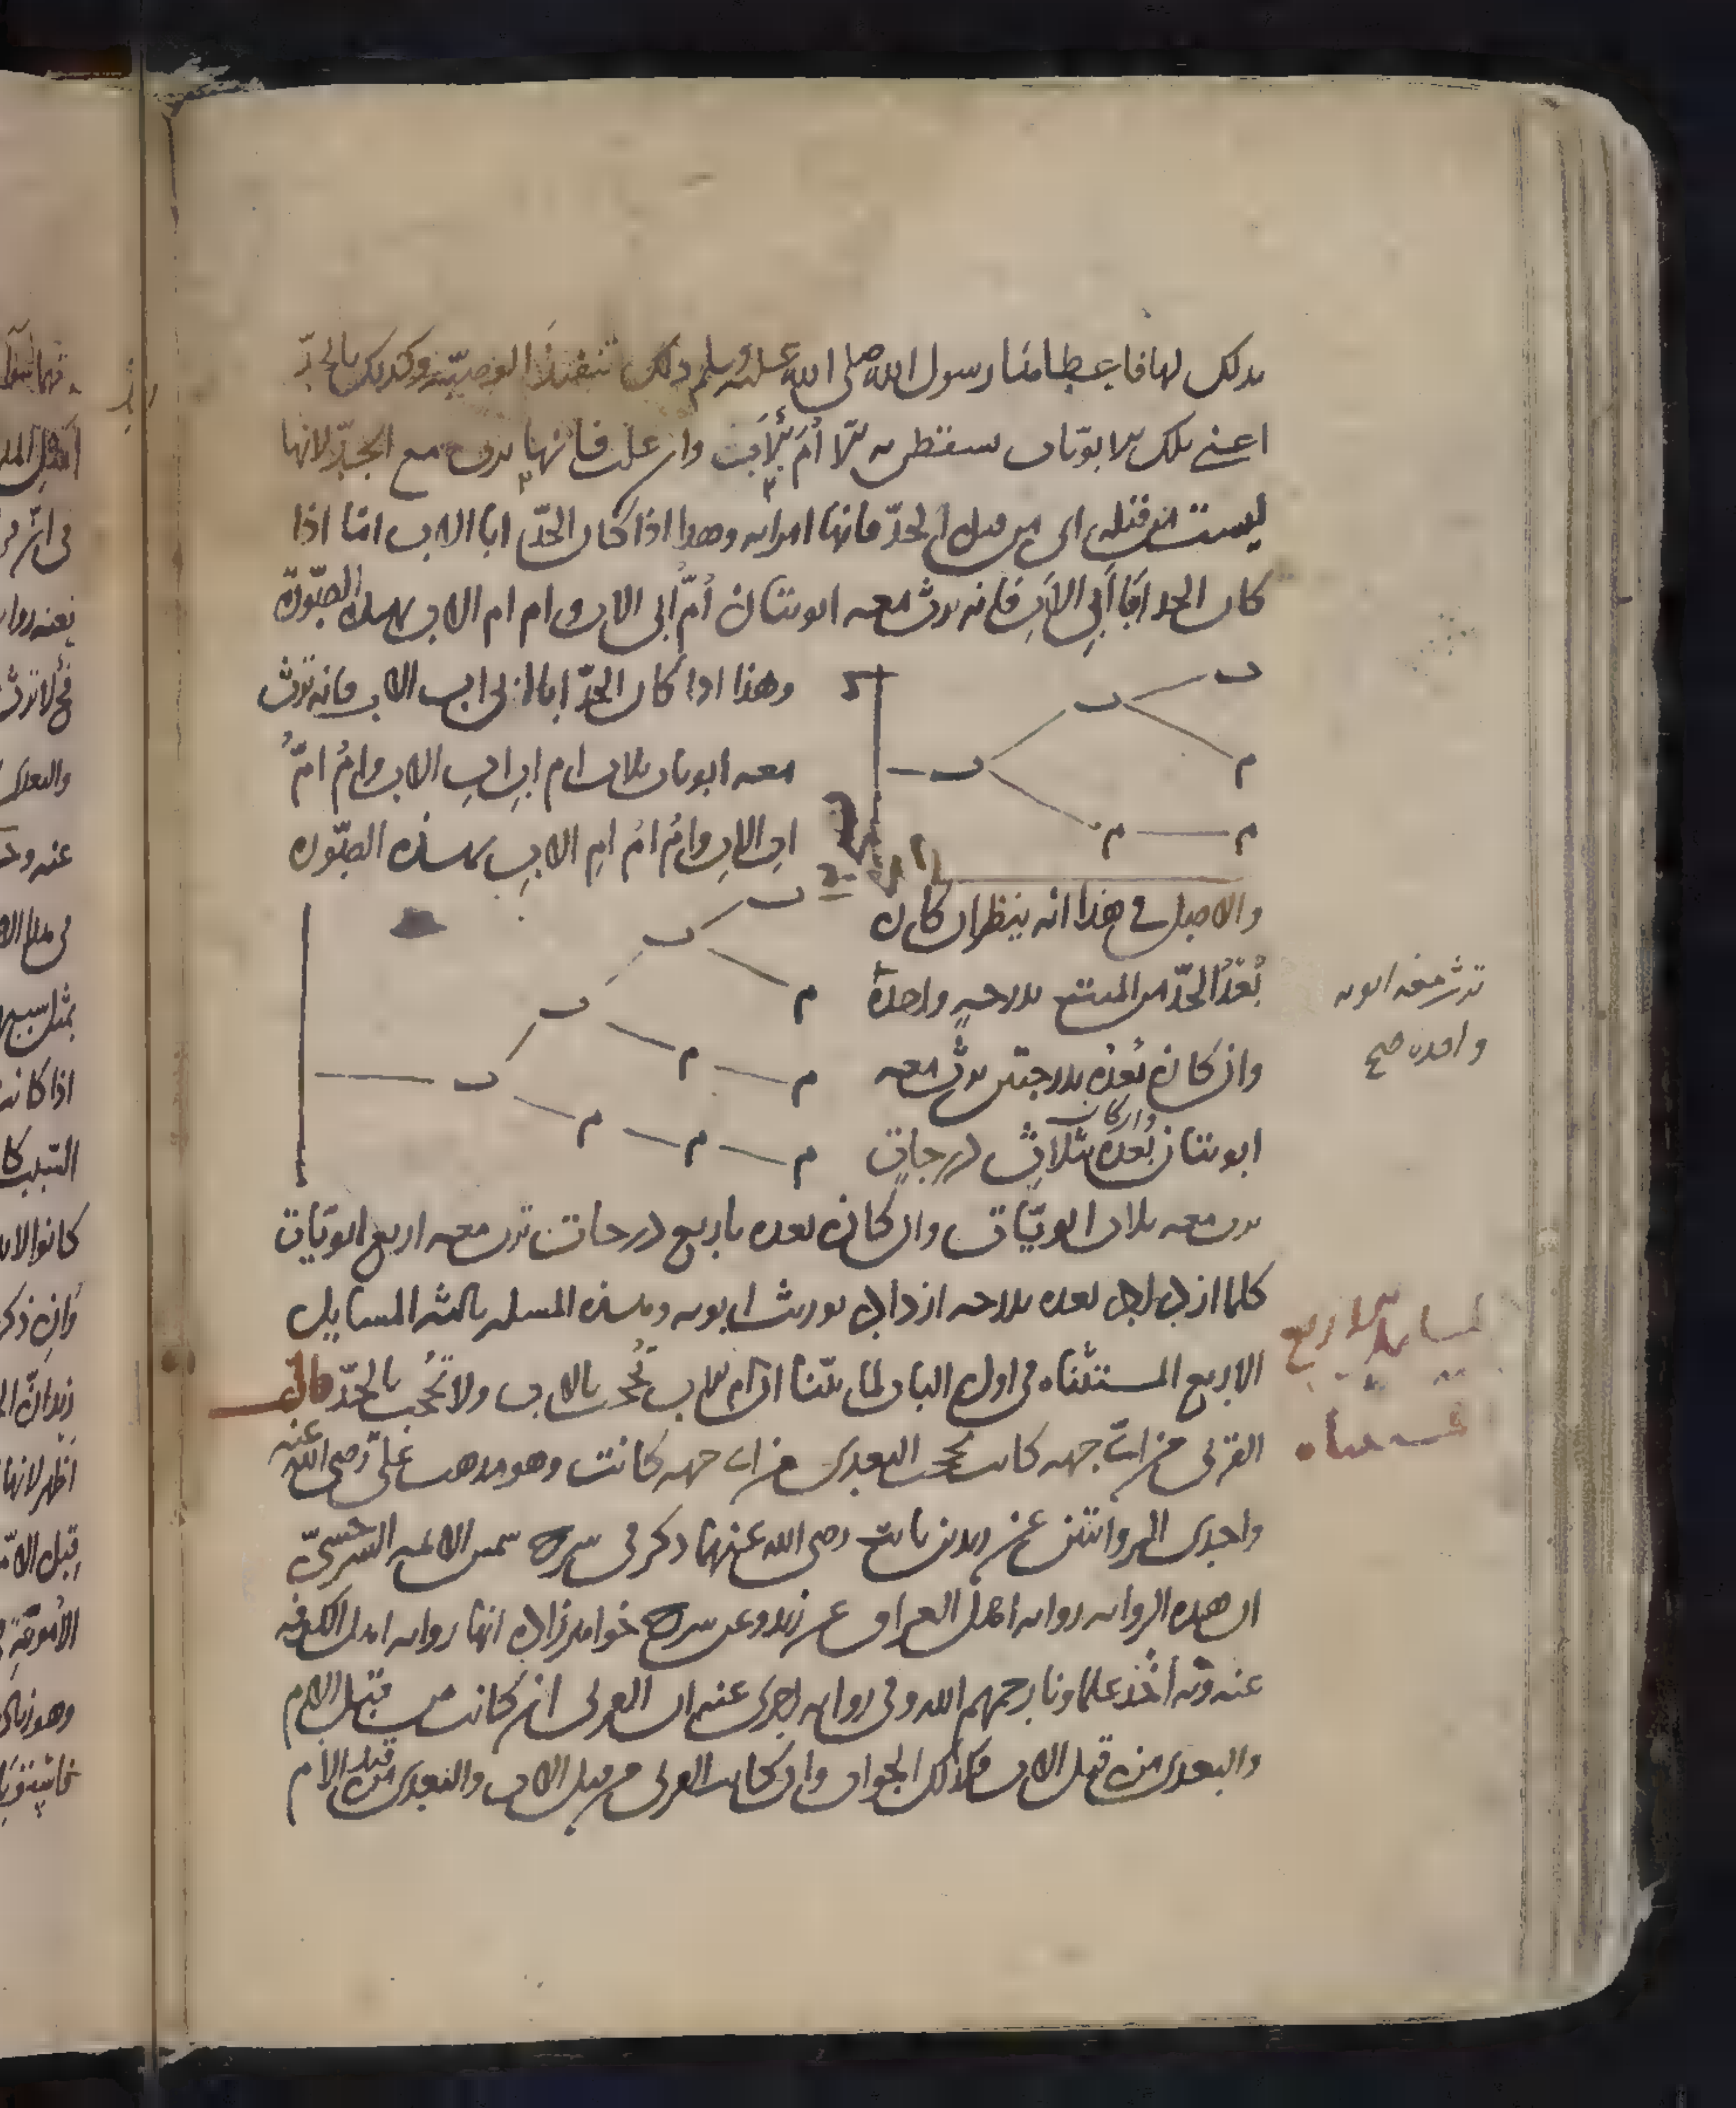 بذلك لها فاعطاها رسول الله صلى الله عليه وسلم ذلك تنفيذا للوصية وكذلك بالجد
اعنى تلك الابويات سقطن به الا ام الاب وان علت فانها ترث مع الجد لانها
ليست من قبله اى من قبل الجد فانها امراته وهذا اذا كان الجد ابا الاب اما اذا
كان الجد ابا ابى الاب فانه ترث معه ابويتان ام ابى الاب وام ام الاب بهذه الصورة
وهذا اذا كان الجد ابا ابى اب الاب فانه ترث
معه ابويات ثلاث ام ابى اب الاب وام ام
اب الاب وام ام ام الاب بهذه الصورة
ب
ب
م
ب
م
م
والاصل فى هذا انه ينظر ان كان
بعد الجد من الميت بدرجة واحدة
ترث معه ابوية
واحدة صح
وان كان بعده بدرجتين ترث معه
ابويتان وان كان بعده بثلاث درجات
ب
ب
م
ب
م
م
ب
م
م
م
ترث معه ثلاث ابويات وان كان بعده باربع درجات ترث معه اربع ابويات
كلما ازداد بعده بدرجة ازداد توريث ابوية وهذه المسئلة ثالثة المسايل
الاربع المستثناه فى اول الباب لما بينا ان ام الاب تحجب بالاب ولا تحجب بالجد قال
القربى من اى جهة كانت تحجب البعدى من اى جهة كانت وهو مذهب على رضى الله عنه
واحدى الروايتين عن زيد بن ثابت رضى الله عنهما ذكر فى شرح شمس الائمة السرخسى
ان هذه الرواية رواية اهل العراق عن زيد وعن شرح خواهرزاده انها رواية اهل الكوفة
عنه وبه اخذ علماونا رحمهم الله وفى رواية اخرى عنه ان القربى ان كانت من قبل الام
والبعدى من قبل الاب فكذلك الجواب وان كانت القربى من قبل الاب والبعدى من قبل الام